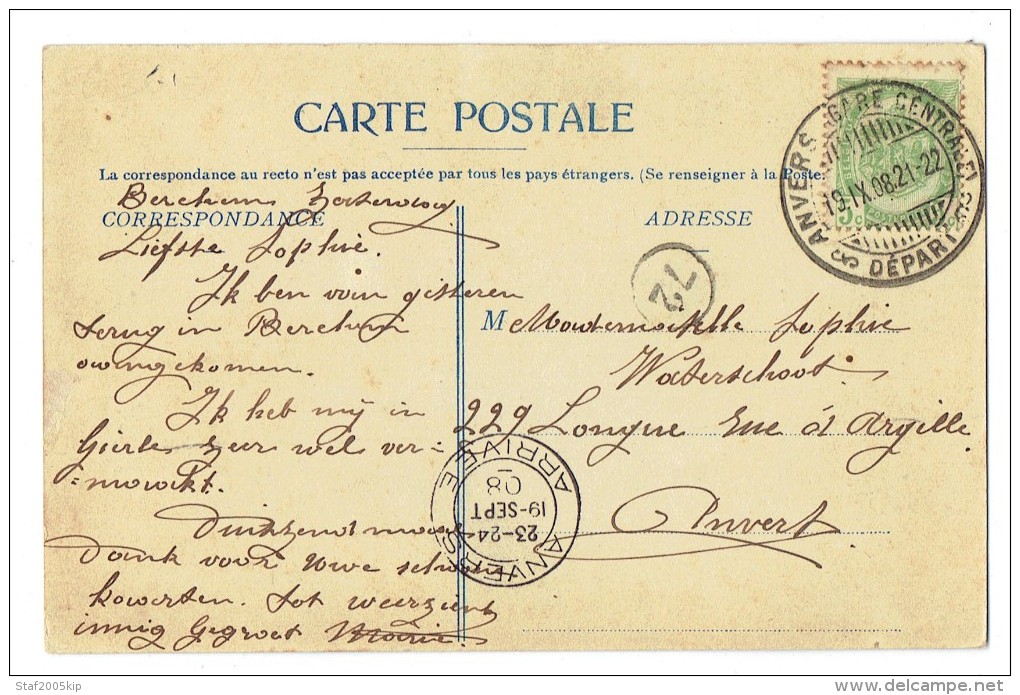 CARTE POSTALE
La correspondance au recto n'est pas acceptée par tous les pays étrangers. (Se renseigner à la Poste.)
CORRESPONDANCE
ADRESSE
Berchem Zaterdag
Liefste Sophie.
Ik ben van gisteren
terug in Berchem
aangekomen.
Ik heb mij in
Gierle zeer wel ver=
=maakt.
Duizendmaal
dank voor uwe schoone
kaarten. tot weerziens
innig Gegroet Marie
M Mademoiselle Sophie
Waterschoot.
229 Longue rue d'Argille
Anvers
ANVERS (GARE CENTRALE)
19.IX.08.21-22
DÉPART
5c
72
ANVERS
23-24
19-SEPT
08
ARRIVÉE
Staf2005kip
delcampe.net